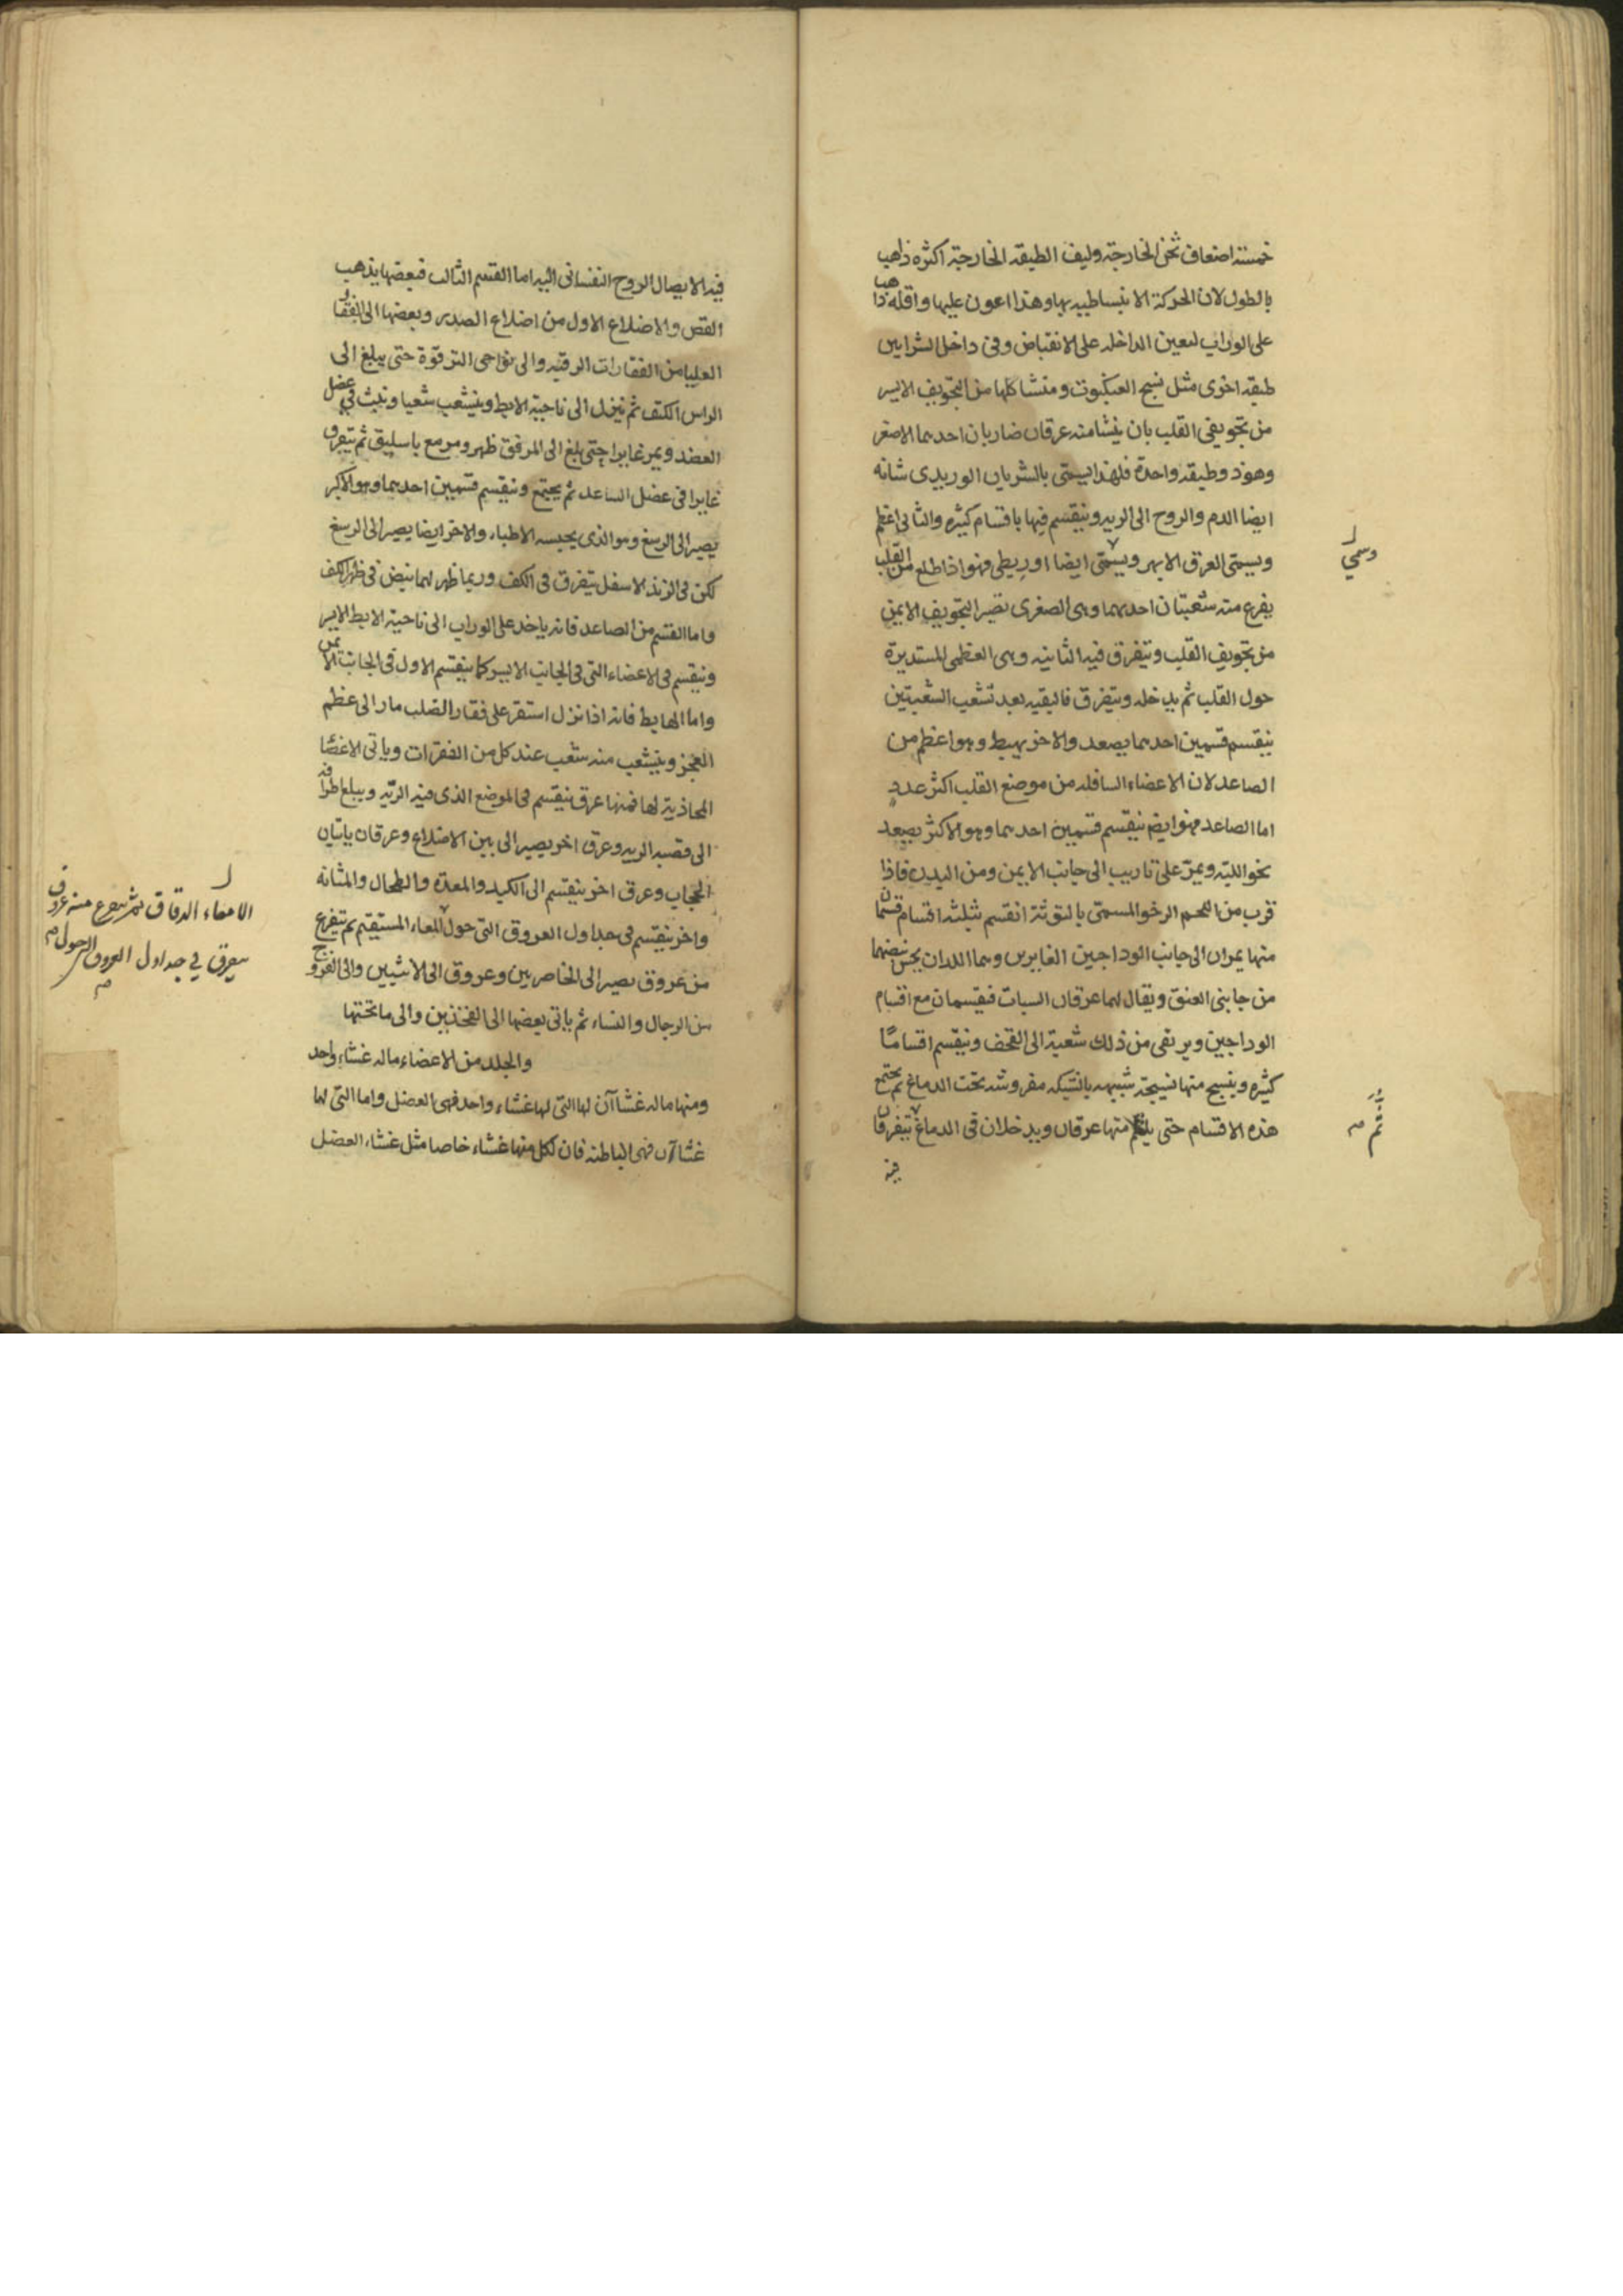 خمسة اضعاف ثخن الخارجة وليف الطبقه الخارجة اكثره ذاهب
بالطول لان الحركة الانبساطيه بها وهذا اعون عليها واقله ذاهب
على الوراب ليعين الداخله على الانقباض وفى داخل الشرايين
طبقه اخرى مثل نسج العنكبوت ومنشا كلها من التجويف الايسر
من تجويفى القلب بان ينشا منه عرقان ضاربان احدهما الاصغر
وهو ذو طبقه واحدة فلهذا يسمى بالشريان الوريدى شانه
ايضا الدم والروح الى الريه وينقسم فيها باقسام كثيره والثانى اعظم
ويسمى العرق الابهر ويسمى ايضا اوريطى فهو اذا طلع من القلب
وسمي
يفرع منه شعبتان احدهما وهى الصغرى تصير التجويف الايمن
من تجويف القلب وتتفرق فيه الثانيه وهى العظمى المستديرة
حول القلب ثم يدخله ويتفرق فالبقيه بعد تشعب الشعبتين
ينقسم قسمين احدهما يصعد والاخر يهبط وهو اعظم من
الصاعد لان الاعضاء السافله من موضع القلب اكثر عدد
اما الصاعد فهو ايضا ينقسم قسمين احدهما وهو الاكثر يصعد
نحو اللبته ويمر على تاريب الى جانب الايمن ومن اليدن فاذا
قرب من اللحم الرخو المسمى بالتوثة انقسم بثلثه اقسام قسمان
منها يمران الى جانب الوداجين الغايرين وهما اللدان يحس نبضهما
من جابنى العنق ويقال لهما عرقان السبات فيقسمان مع اقسام
الوداجين ويرتقى من ذلك شعبة الى القحف وينقسم اقسامًا
كثيره وينسج منها نسيجة شبيهه بالشبكه مفروشه تحت الدماغ ثم يجتمع
هذه الاقسام حتى منها عرقان ويدخلان فى الدماغ يتفرقان
ثم
فيه
فيه الايصال الروح النفسانى اليه اما القسم الثالث فبعضها يذهب
القص والاضلاع الاول من اضلاع الصدر وبعضها الى الفقار
العليا من الفقارات الرقبه والى نواحى الترقوة حتى يبلغ الى
الراس الكتف ثم ينزل الى ناحية الابط وينشعب شعبا وتنبث فى عضل
العضد ويمر غايرا حتى بلغ الى المرفق ظهر ومر مع باسليق ثم يتفرق
غايرا فى عضل الساعد ثم يجتمع وينقسم قسمين احدهما وهو الاكبر
يصير الى الرسغ وهو الذى يحبسه الاطباء والاخر ايضا يصير الى الرسغ
لكن فى الزند الاسفل يتفرق فى الكف وربما ظهر لهما نبض فى ظهر الكف
واما القسم من الصاعد فانه ياخذ على الوراب الى ناحية الابط الايسر
وينقسم فى الاعضاء التى فى الجانب الايسر كما ينقسم الاول فى الجانب الايمن
واما الهابط فانه اذا نزل استقر على فقار الصلب مارا الى عظم
العجز وينشعب منه شعب عند كل من الفقرات وياتى الاعضا
المحاذية لها فمنها عرق ينقسم فى الموضع الذى فيه الريه ويبلغ اطرافه
الى قصبه الريه وعرق اخر يصير الى بين الاضلاع وعرقان ياتيان
الحجاب وعرق اخر ينقسم الى الكبد والمعدة والطحال والمثانه
واخر ينقسم فى جداول العروق التى حول المعاء المستقيم ثم يتفرع
الامعاء الدقاق ثم يتفرع منه عروق
يتفرق في جداول العروق التي حول
من عروق يصير الى الخاصرين وعروق الى الانثيين والى الفروج
من الرجال والنساء ثم ياتى بعضها الى الفخذين والى ما تحتها
والجلد من الاعضاء ماله غشاء واحد
ومنها ماله غشاآن لها التى لها غشاء واحد فهى العضل واما التى لها
غشاآن فهى الباطنه فان لكل منها غشاء خاصا مثل غشاء العضل